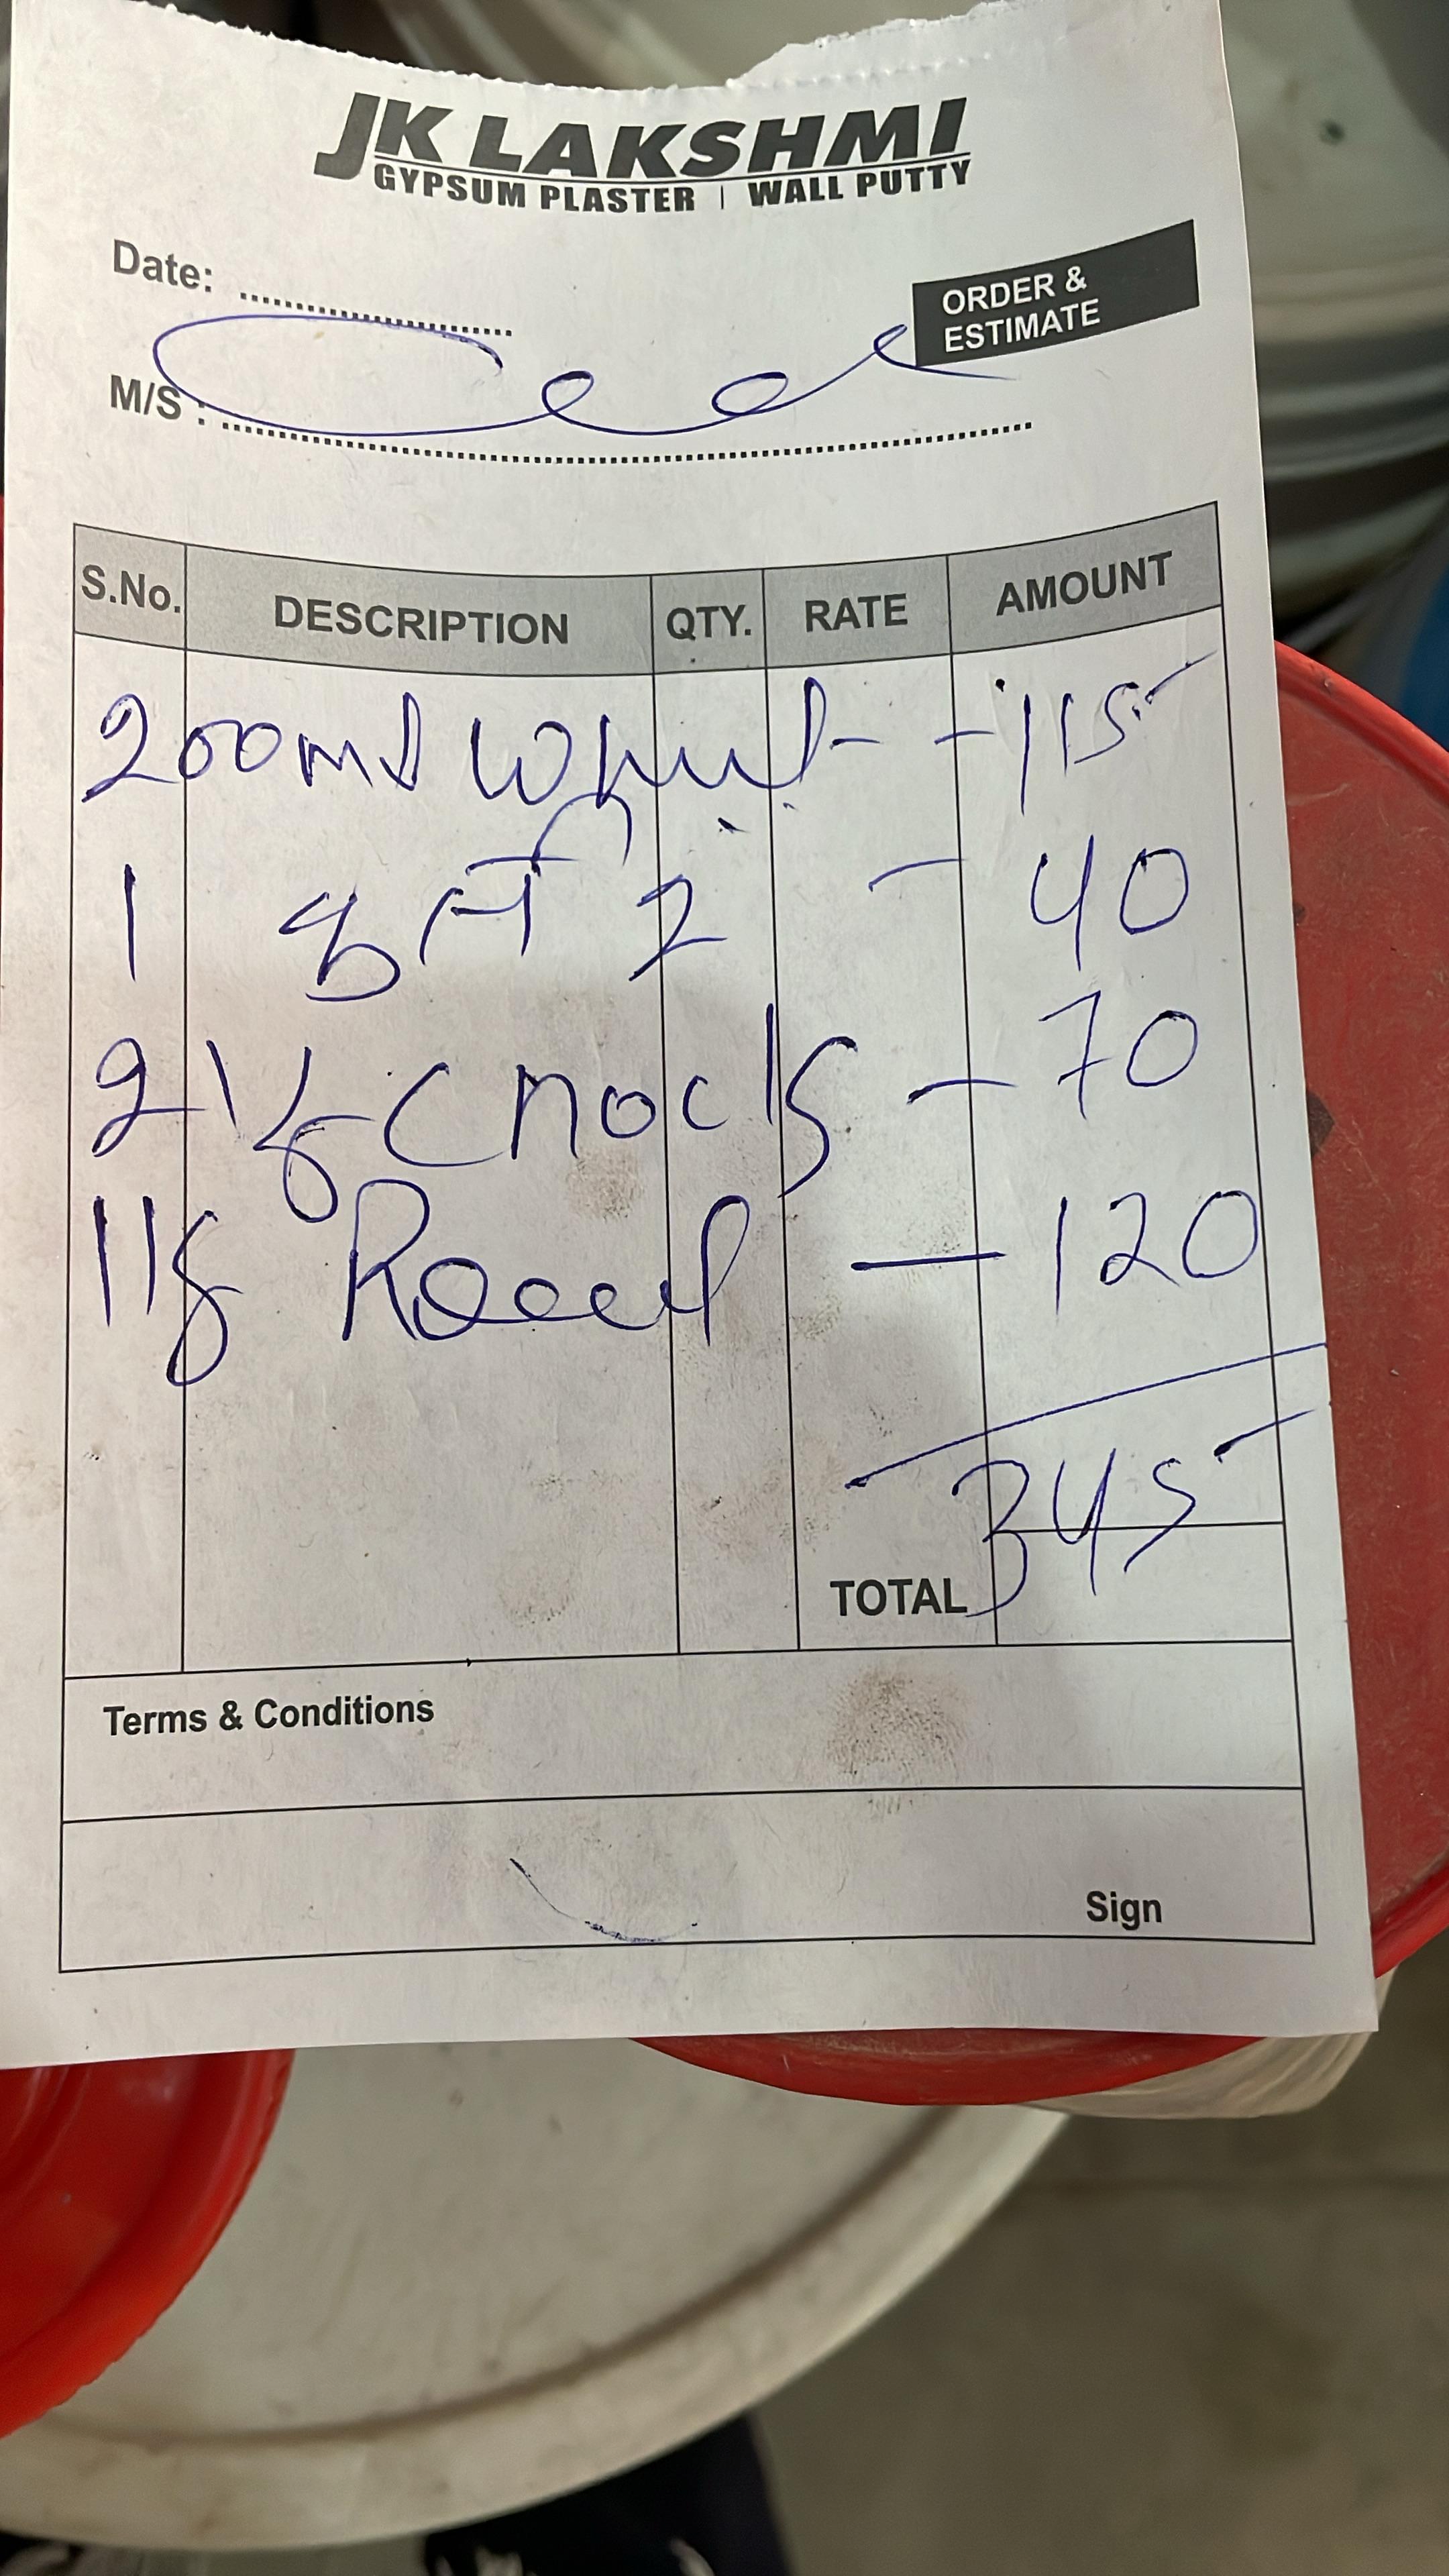 JK LAKSHMI
GYPSUM PLASTER | WALL PUTTY
Date:
ORDER &
ESTIMATE
M/S :
S.No. DESCRIPTION QTY. RATE AMOUNT
200ml - - 115
1 - 40
2 - 70
— 120
345
TOTAL
Terms & Conditions
Sign